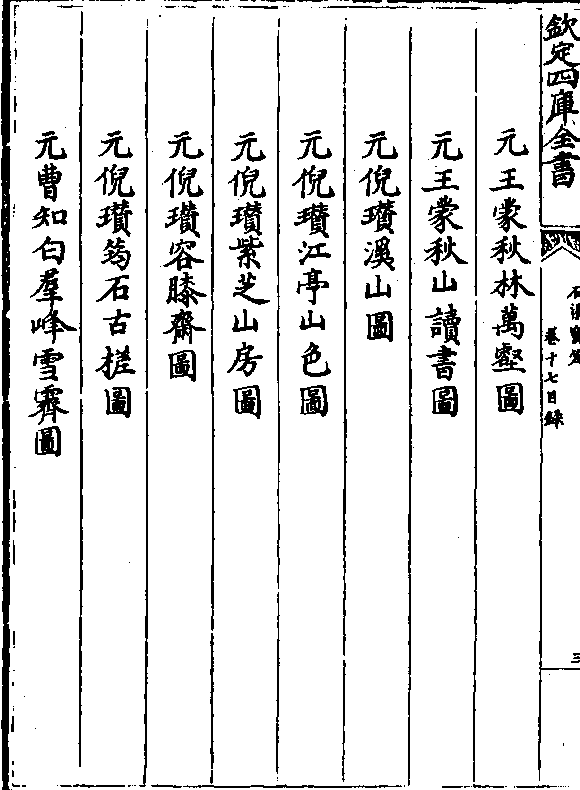 欽定四庫全書
石渠寶笈
卷十七目錄
三
元王蒙秋林萬壑圖
元王蒙秋山讀書圖
元倪瓚溪山圖
元倪瓚江亭山色圖
元倪瓚紫芝山房圖
元倪瓚容膝齋圖
元倪瓚筠石古槎圖
元曹知白羣峰雪霽圖